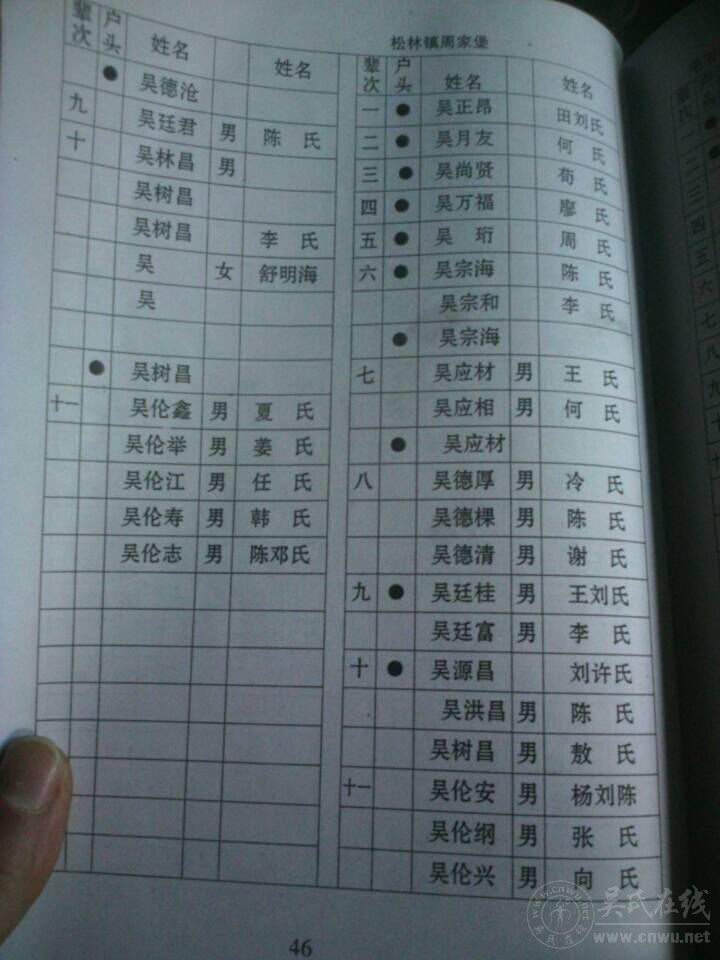 松林镇周家堡
辈次 户头 姓名 姓名
● 吴德沧
九 吴廷君 男 陈 氏
十 吴林昌 男
吴树昌
吴树昌 李 氏
吴 女 舒明海
吴
● 吴树昌
十一 吴伦鑫 男 夏 氏
吴伦举 男 姜 氏
吴伦江 男 任 氏
吴伦寿 男 韩 氏
吴伦志 男 陈邓氏
辈次 户头 姓名 姓名
一 ● 吴正昂 田刘氏
二 ● 吴月友 何 氏
三 ● 吴尚贤 荀 氏
四 ● 吴万福 廖 氏
五 ● 吴 珩 周 氏
六 ● 吴宗海 陈 氏
吴宗和 李 氏
● 吴宗海
七 吴应材 男 王 氏
吴应相 男 何 氏
● 吴应材
八 吴德厚 男 冷 氏
吴德棵 男 陈 氏
吴德清 男 谢 氏
九 ● 吴廷桂 男 王刘氏
吴廷富 男 李 氏
十 ● 吴源昌 刘许氏
吴洪昌 男 陈 氏
吴树昌 男 敖 氏
十一 吴伦安 男 杨刘陈
吴伦纲 男 张 氏
吴伦兴 男 向 氏
46
吴氏在线
www.cnwu.net